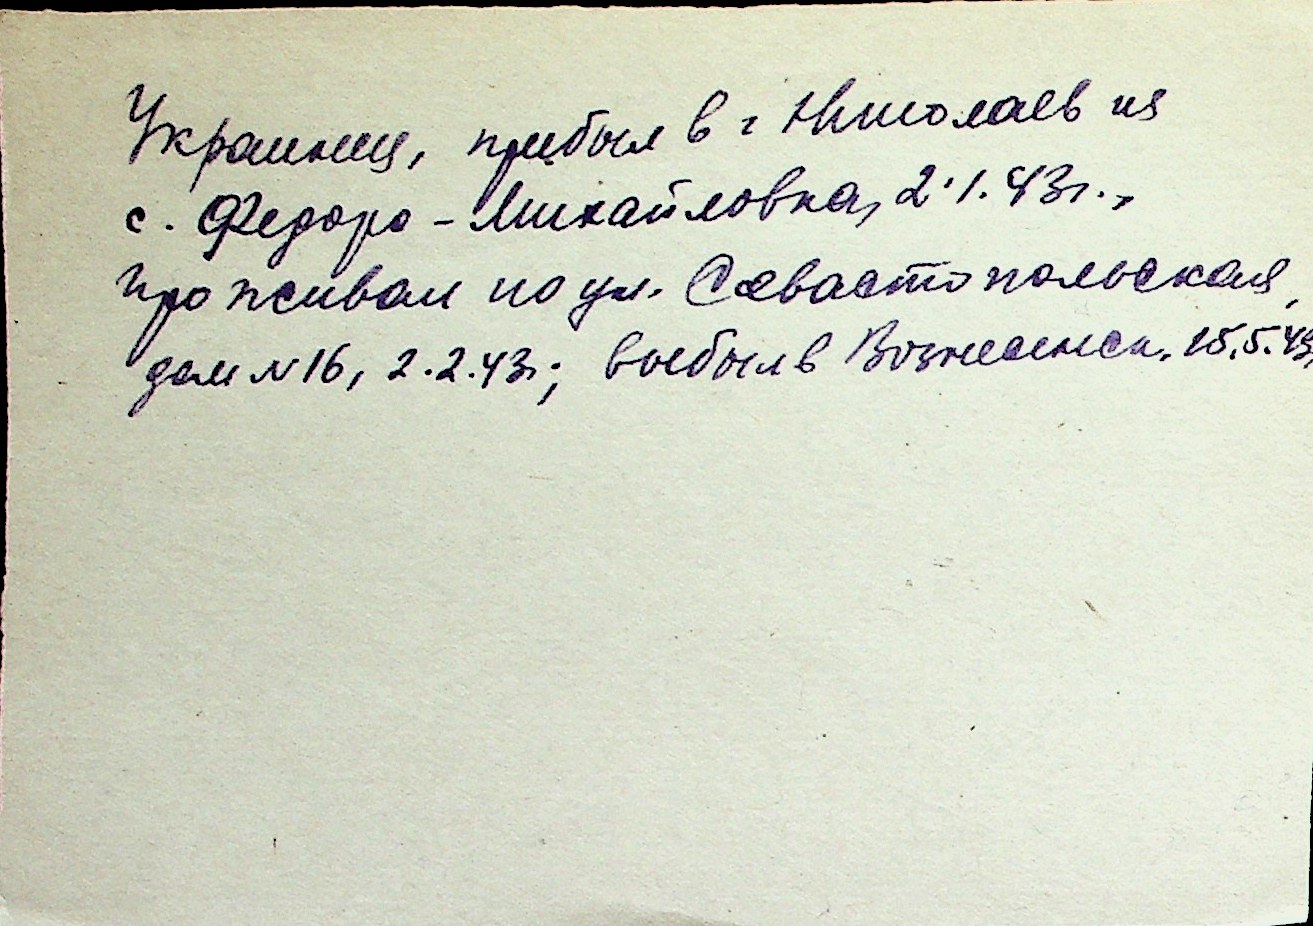 Украинец, прибыл в г Николаев из
с. Федоро-Михайловка, 2.1.43г.,
проживал по ул. Севастопольская,
дом №16, 2.2.43г.; выбыл в Вознесенск. 15.5.43